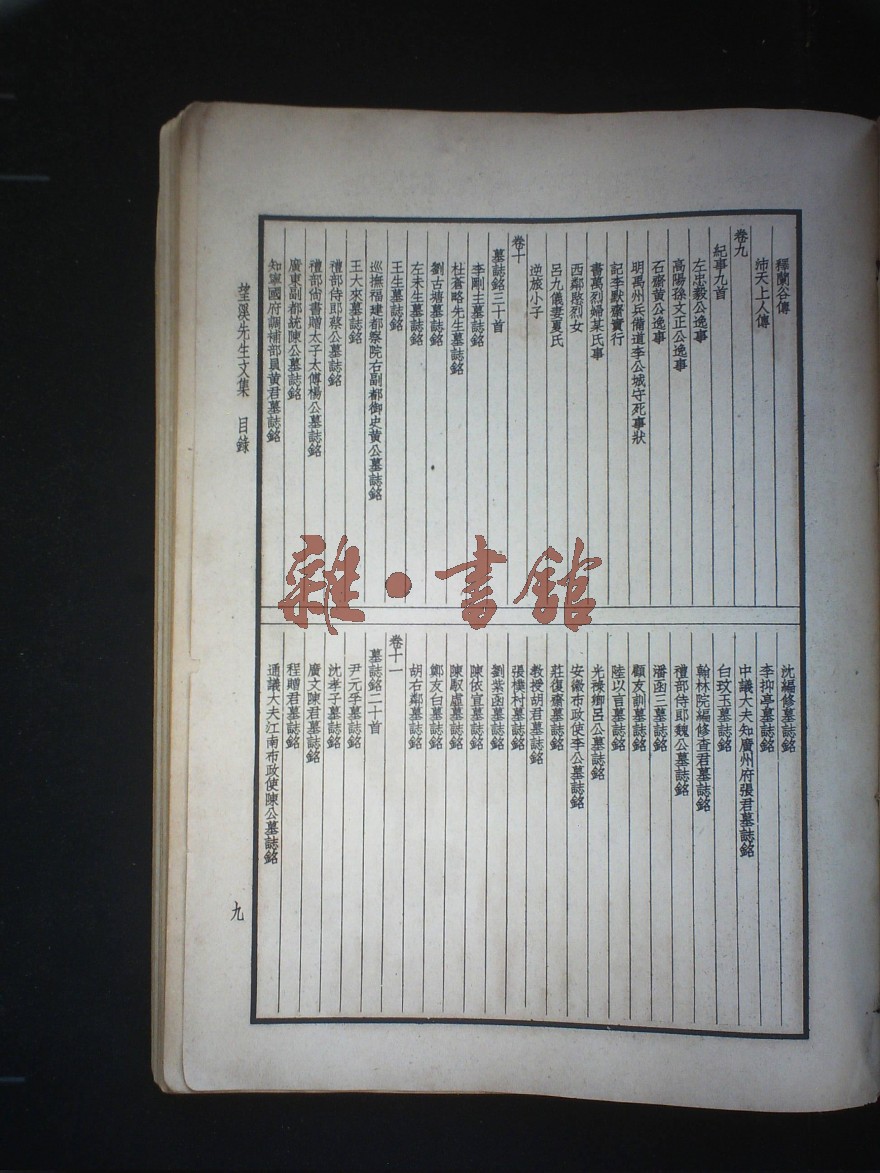 釋蘭谷傳
沛天上人傳
卷九
紀事九首
左忠毅公逸事
高陽孫文正公逸事
石齋黃公逸事
明禹州兵備道李公城守死事狀
記李默齋實行
書萬烈婦某氏事
西鄰愍烈女
呂九儀妻夏氏
逆旅小子
卷十
墓誌銘三十首
李剛主墓誌銘
杜蒼略先生墓誌銘
劉古塘墓誌銘
左未生墓誌銘
王生墓誌銘
巡撫福建都察院右副都御史黃公墓誌銘
王大來墓誌銘
禮部侍郎蔡公墓誌銘
禮部尙書贈太子太傅楊公墓誌銘
廣東副都統陳公墓誌銘
知寧國府調補部員黃君墓誌銘
沈編修墓誌銘
李抑亭墓誌銘
中議大夫知廣州府張君墓誌銘
白玟玉墓誌銘
翰林院編修查君墓誌銘
禮部侍郎魏公墓誌銘
潘函三墓誌銘
顧友訓墓誌銘
陸以言墓誌銘
光祿卿呂公墓誌銘
安徽布政使李公墓誌銘
莊復齋墓誌銘
教授胡君墓誌銘
張樸村墓誌銘
劉紫函墓誌銘
陳依宣墓誌銘
陳馭虛墓誌銘
鄭友白墓誌銘
胡右鄰墓誌銘
卷十一
墓誌銘二十首
尹元孚墓誌銘
沈孝子墓誌銘
廣文陳君墓誌銘
程贈君墓誌銘
通議大夫江南布政使陳公墓誌銘
望溪先生文集 目錄
九
雜·書館